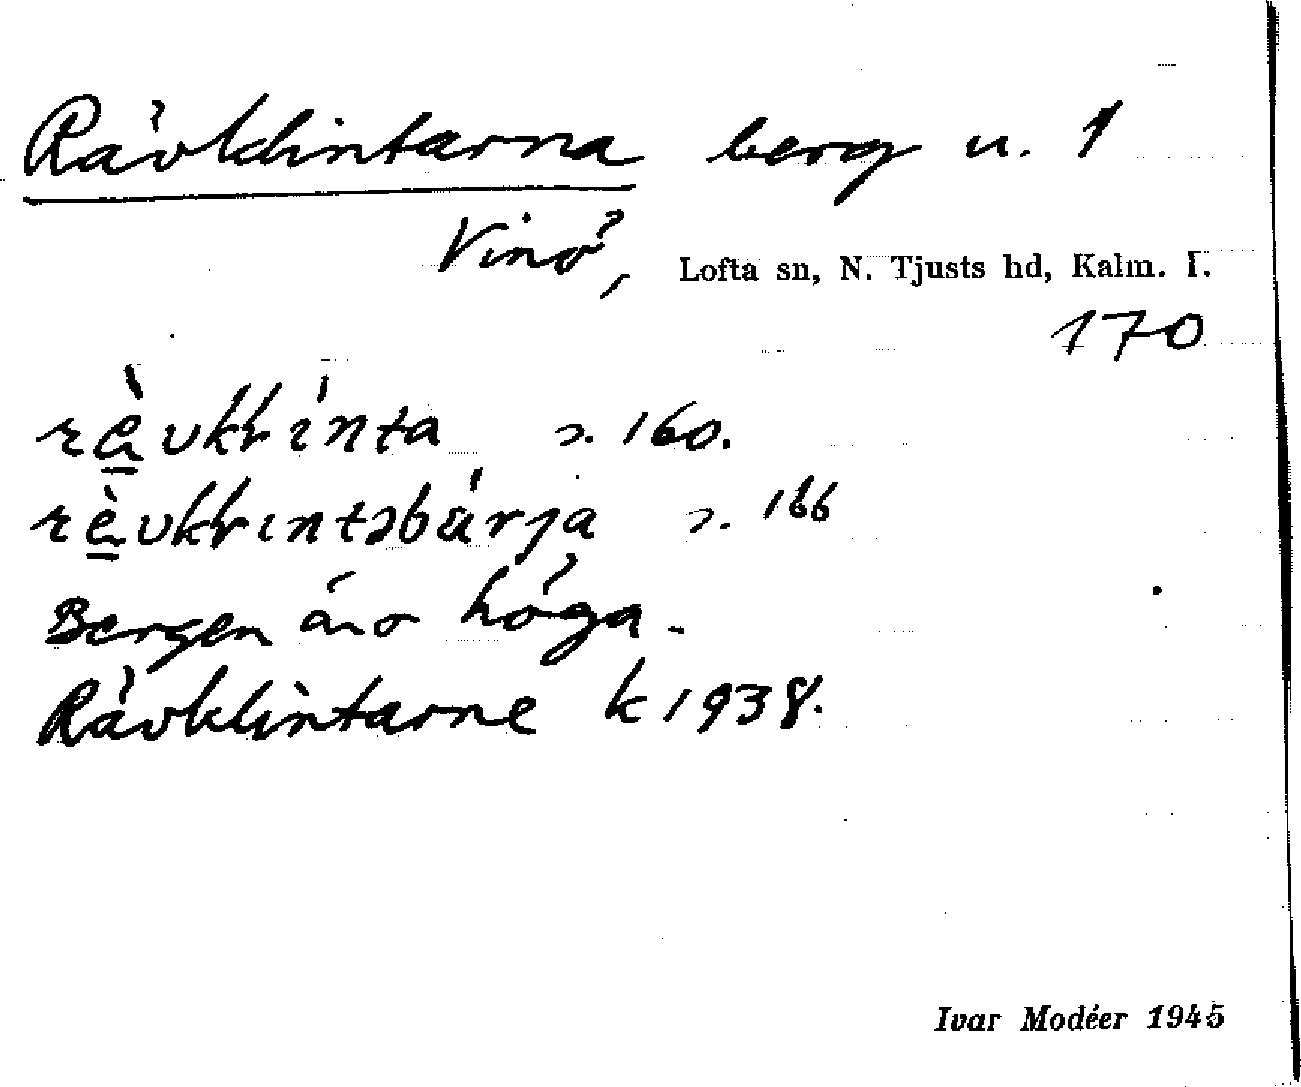 Rävklintarna berg u. 1
Vinö, Lofta sn, N. Tjusts hd, Kalm. l.
170
rὲvkḷinta s. 160.
rὲvkḷintəbárja s. 166
Bergen äro höga.
Rävklintarne k 1938.
Ivar Modéer 1945